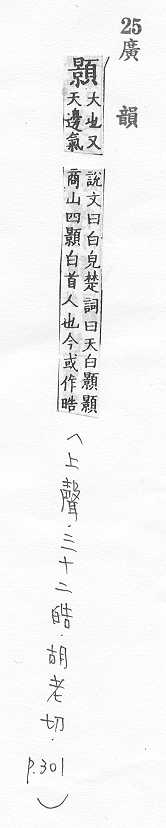 25廣韻
顥
大也又
天邊氣
說文曰白皃楚詞曰天白顥顥
商山四顥白首人也今或作晧
(上聲.三十二皓.胡老切.p.301)